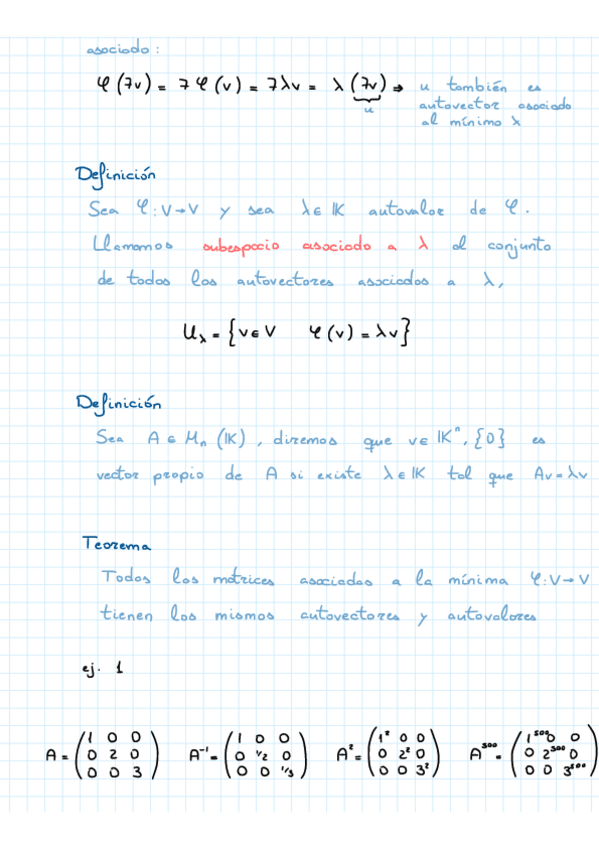 asociado :
φ (7v) = 7 φ (v) = 7λv = λ (7v) → u también es
u
autovector asociado
al mínimo λ
Definición
Sea φ : V→V y sea λ∈ 𝕂 autovalor de φ.
Llamamos subespacio asociado a λ al conjunto
de todos los autovectores asociados a λ,
U_λ = {v∈V φ (v) = λv}
Definición
Sea A ∈ M_n (𝕂) , diremos que v∈ 𝕂^n \ {0} es
vector propio de A si existe λ∈𝕂 tal que Av=λv
Teorema
Todos las matrices asociadas a la mínima φ:V→V
tienen los mismos autovectores y autovalores
ej. 1
A = (1 0 0 A^-1 = (1 0 0 A^2 = (1^2 0 0 A^500 = (1^500 0 0
0 2 0 0 1/2 0 0 2^2 0 0 2^500 0
0 0 3) 0 0 1/3) 0 0 3^2) 0 0 3^500)